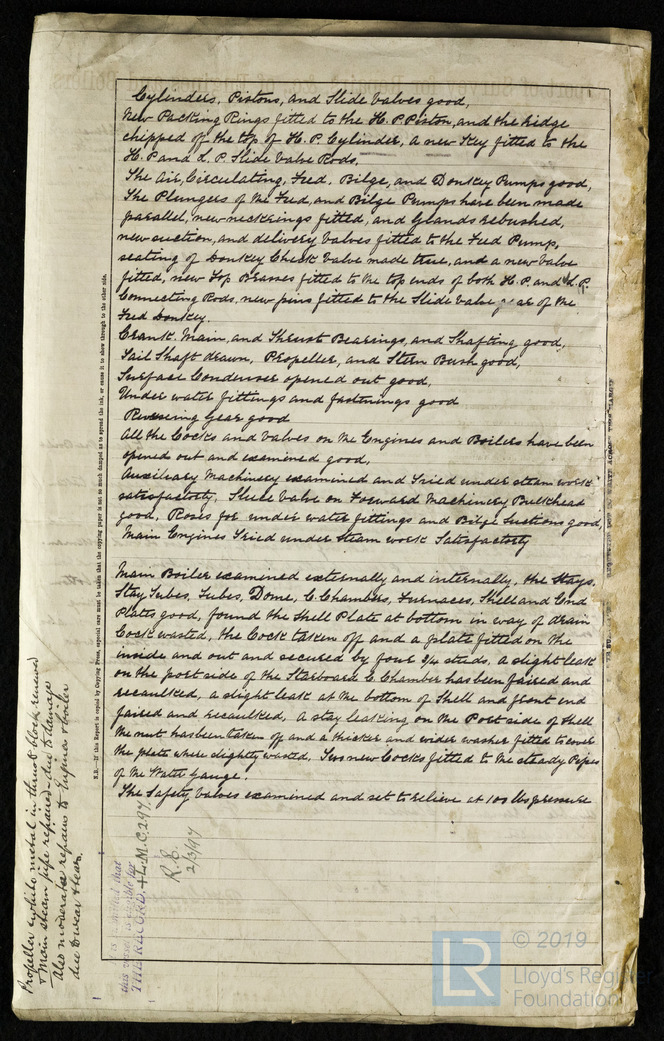 Cylinders, Pistons, and Slide Valves good,
New Packing Rings fitted to the H. P. Piston, and the ridge
chipped off the top of H. P. Cylinder, a new Key fitted to the
H. P. and L. P. Slide Valve Rods,
The Air, Circulating, Feed, Bilge, and Donkey Pumps good,
The Plungers of the Feed, and Bilge Pumps have been made
parallel, new neckrings fitted, and Glands rebushed,
new suction, and delivery valves fitted to the Feed Pump,
seating of Donkey Check Valve made true, and a new Valve
fitted, new Top Brasses fitted to the top ends of both H. P. and L. P.
Connecting Rods, new pins fitted to the Slide Valve gear of the
Feed Donkey.
Crank, Main, and Thrust Bearings, and Shafting good,
Tail Shaft drawn, Propeller, and Stern Bush good,
Surface Condenser opened out good,
Under water fittings and fastnings good
Reversing Gear good
All the Cocks and Valves on the Engines and Boilers have been
opened out and examined good,
Auxiliary Machinery examined and Tried under steam work
satisfactorily, Sluice Valve on Forward Machinery Bulkhead
good, Roses for under water fittings and Bilge Suctions good,
Main Engines Tried under Steam work Satisfactorily
Main Boiler examined externally and internally, the Stays,
Stay Tubes, Tubes, Dome, C. Chambers, Furnaces, Shell and End
Plates good, found the Shell Plate at bottom in way of drain
Cock wasted, the Cock taken off and a plate fitted on the
inside and out and secured by four 3/4 studs, a slight leak
on the port side of the Starboard C. Chamber has been faired and
recaulked, a slight leak at the bottom of Shell and front end
faired and recaulked, A stay leaking on the Port side of Shell
the nut has been taken off and a thicker and wider washer fitted to cover
the plate where slightly wasted, Two new Cocks fitted to the steady Pipes
of the Water Gauge.
The Safety Valves examined and set to relieve at 100 lbs pressure
N.B.—If this Report is copied by Copying Press, especial care must be taken that the copying paper is not so much damped as to spread the ink, or cause it to show through to the other side.
Propeller & white metal in thrust block renewed
& Main steam pipe repaired due to damage
Also moderate repairs to Engines & boiler
due to wear & tear.
is submitted that
this vessel is eligible for
THE RECORD. + L.M.C. 2.97.
R.E.
2/3/97
© 2019
Lloyd's Register
Foundation
LR